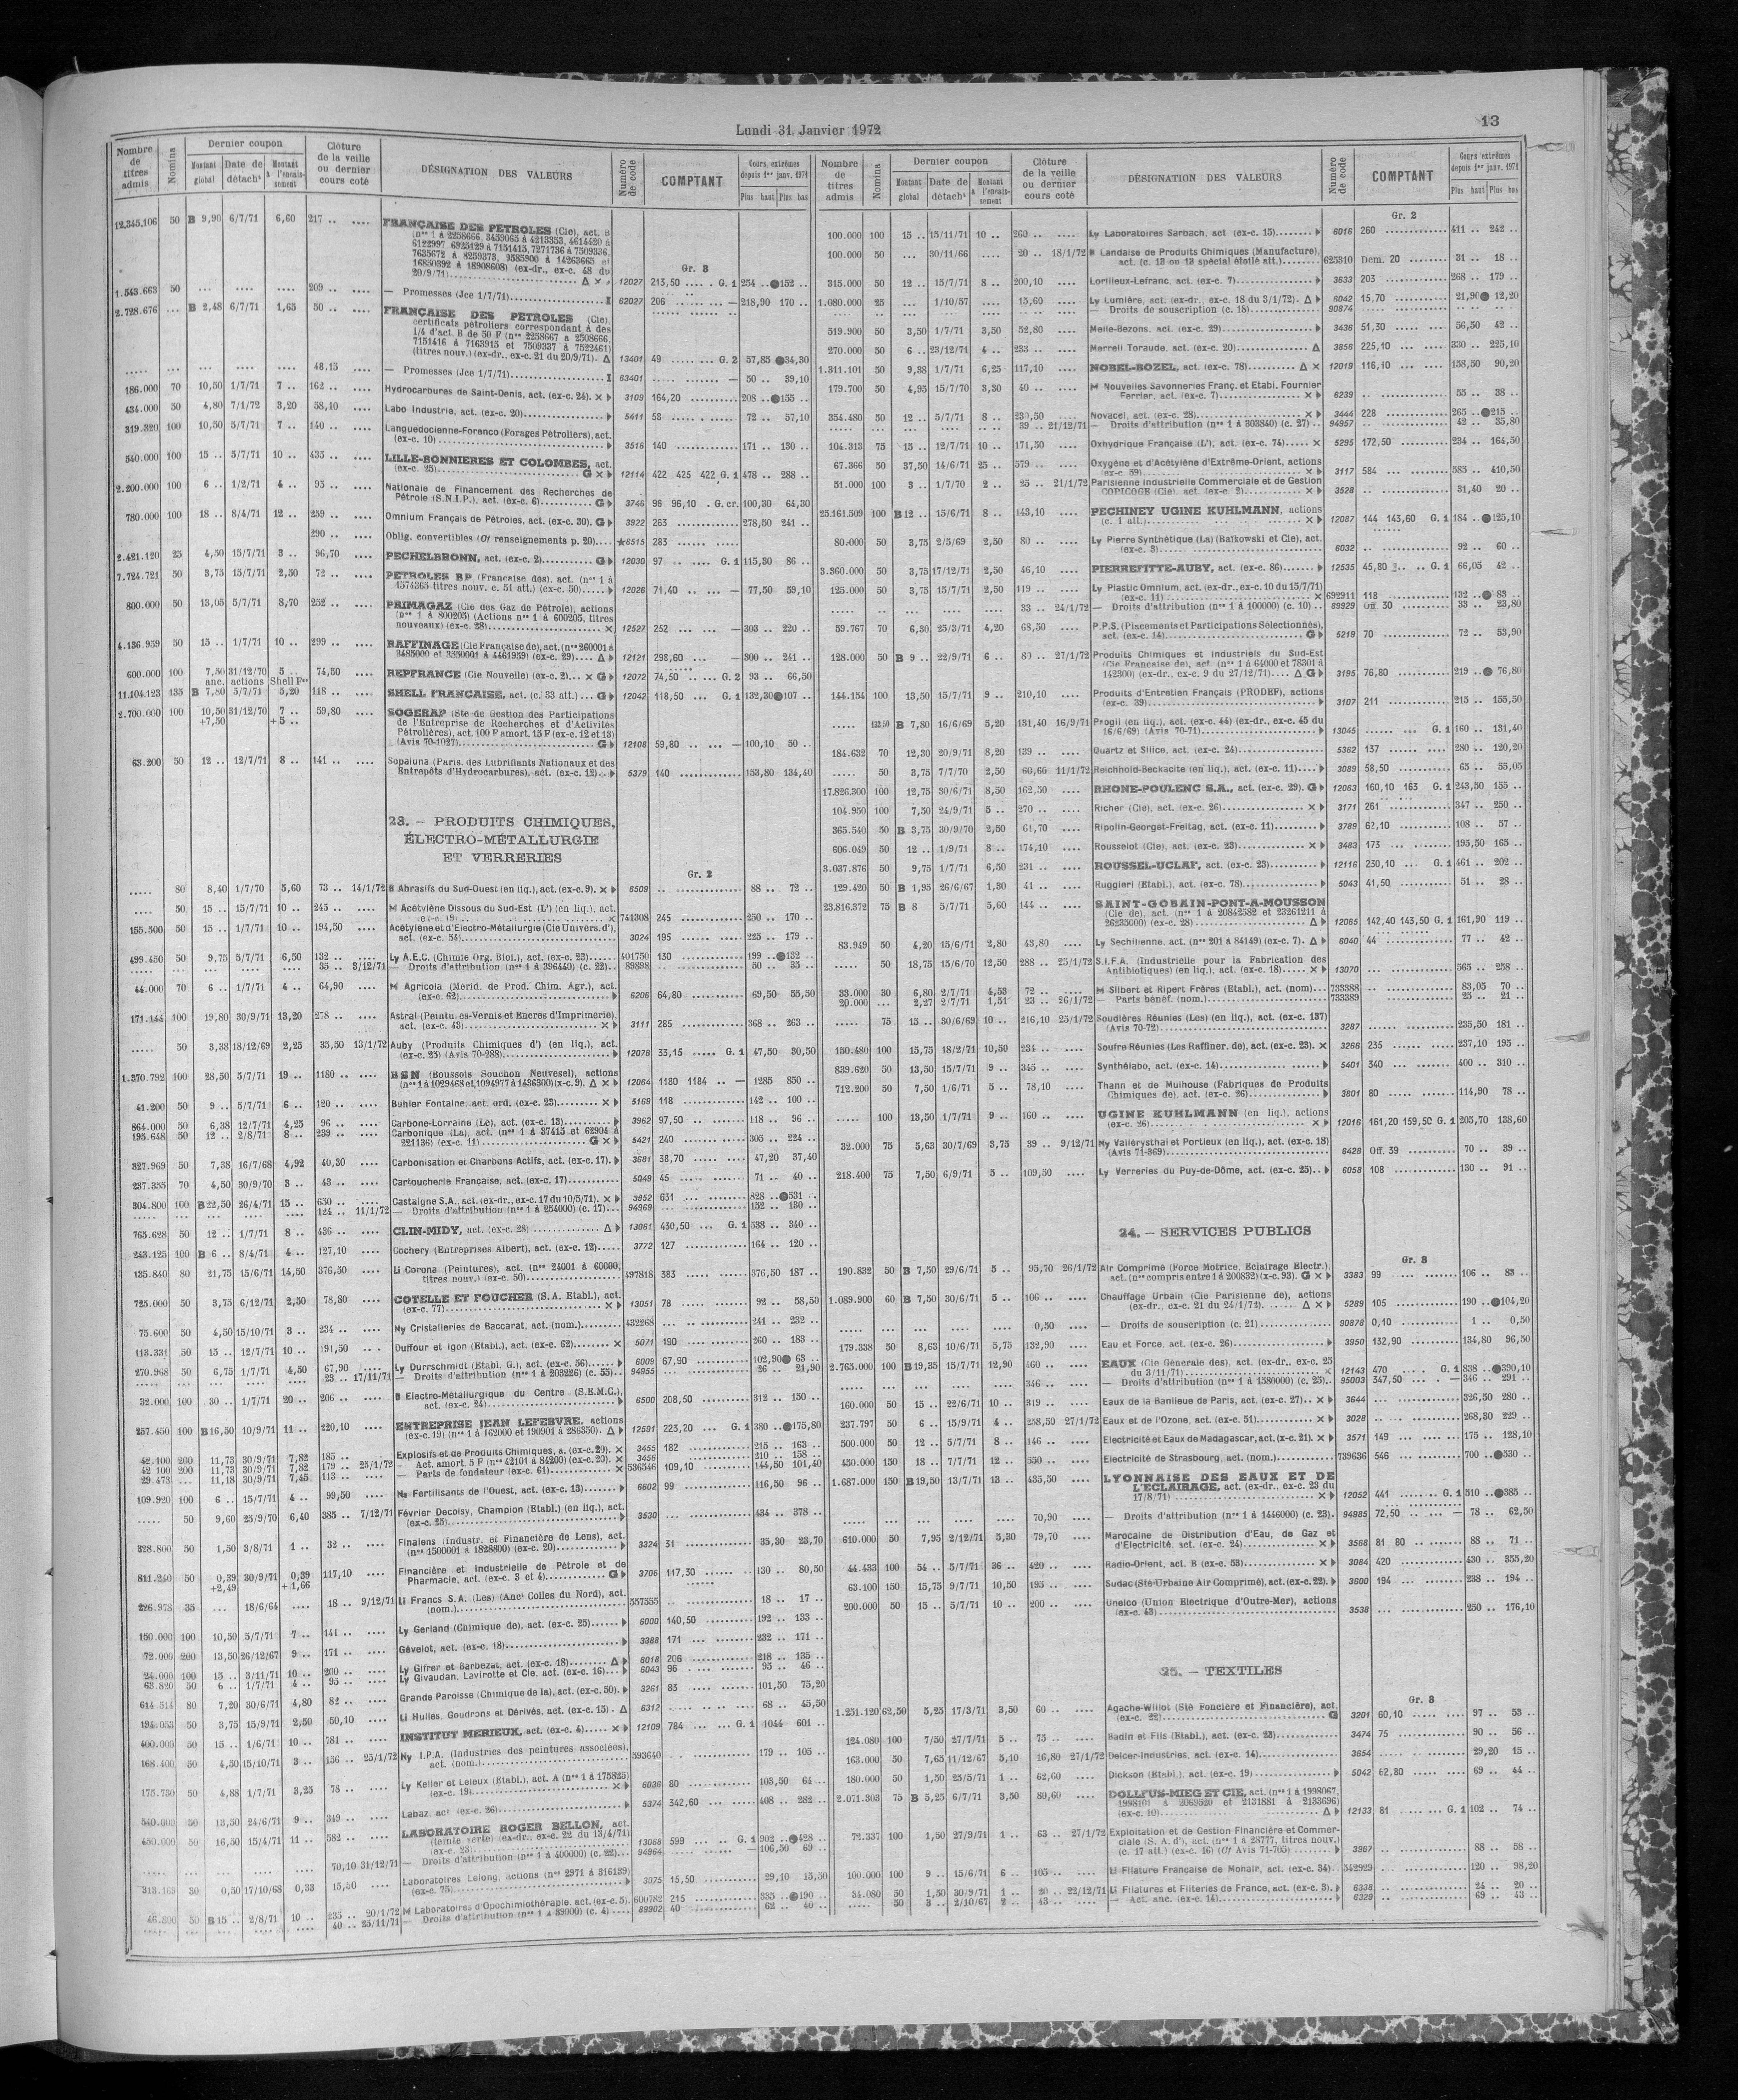 Lundi 31 Janvier 1972
13
Nombre de titres admis
Nomina
Dernier coupon
Montant global
Date de détacht
Montant à l'encaissement
Clôture de la veille ou dernier cours coté
DÉSIGNATION DES VALEURS
Numéro de code
COMPTANT
Cours extrêmes depuis 1er janv. 1971
Plus haut Plus bas
12.345.106 50 B 9,90 6/7/71 6,60 217 .. .... FRANÇAISE DES PÉTROLES (Cie), act. B
20/9/71) Gr. 3 12027 213,50 .... G. 1 254 .. 152 ..
1.543.663 50 ... .... .... 209 .. .... — Promesses (Jce 1/7/71) 62027 206 — 218,90 170 ..
2.728.676 ... B 2,48 6/7/71 1,65 50 .. .... FRANÇAISE DES PETROLES (Cie),
certificats pétroliers correspondant à des
1/4 d'act. B de 50 F (nos 2258667 à 2508666,
7151416 à 7163915 et 7509337 à 7522461)
(titres nouv.) (ex-dr., ex-c. 21 du 20/9/71). Δ 13401 49 G. 2 57,85 34,30
48,15 .... — Promesses (Jce 1/7/71) 63401 — 50 .. 39,10
186.000 70 10,50 1/7/71 7 .. 162 .. .... Hydrocarbures de Saint-Denis, act. (ex-c. 24). 3109 164,20 208 .. 155 ..
434.000 50 4,80 7/1/72 3,20 58,10 .... Labo Industrie, act. (ex-c. 20) 5411 58 72 .. 57,10
319.320 100 10,50 5/7/71 7 .. 140 .. .... Languedocienne-Forenco (Forages Pétroliers), act.
(ex-c. 10) 3516 140 171 .. 130 ..
540.000 100 15 .. 5/7/71 10 .. 435 .. .... LILLE-BONNIERES ET COLOMBES, act.
(ex-c. 25) G 12114 422 425 422 G. 1 478 .. 288 ..
2.200.000 100 6 .. 1/2/71 4 .. 95 .. .... Nationale de Financement des Recherches de
Pétrole (S.N.I.P.), act. (ex-c. 6) G 3746 96 96,10 . G. cr. 100,30 64,30
780.000 100 18 .. 8/4/71 12 .. 259 .. .... Omnium Français de Pétroles, act. (ex-c. 30). G 3922 263 278,50 241 ..
290 .. .... Oblig. convertibles (Cf renseignements p. 20) 6515 283
2.421.120 25 4,50 15/7/71 3 .. 96,70 .... PECHELBRONN, act. (ex-c. 2) G 12030 97 G. 1 115,30 86 ..
7.724.721 50 3,75 15/7/71 2,50 72 .. .... PETROLES BP (Francaise des), act. (nos 1 à
1574365 titres nouv. c. 51 att.) (ex-c. 50) 12026 71,40 — 77,50 59,10
800.000 50 13,05 5/7/71 8,70 252 .. .... PRIMAGAZ (Cie des Gaz de Pétrole), actions
(nos 1 à 800205) (Actions nos 1 à 600205, titres
nouveaux) (ex-c. 28) 12527 252 — 303 .. 220 ..
4.136.959 50 15 .. 1/7/71 10 .. 299 .. .... RAFFINAGE (Cie Française de), act. (nos 260001 à
3485000 et 3550001 à 4461959) (ex-c. 29) Δ 12121 298,60 — 300 .. 241 ..
600.000 100 7,50 31/12/70 5 .. 74,50 .... REPFRANCE (Cie Nouvelle) (ex-c. 2) G 12072 74,50 G. 2 93 .. 66,50
anc. actions Shell Fse
11.104.123 135 B 7,80 5/7/71 5,20 118 .. .... SHELL FRANÇAISE, act. (c. 33 att.) G 12042 118,50 G. 1 132,30 107 ..
2.700.000 100 10,50 31/12/70 7 .. 59,80 .... SOGERAP (Sté de Gestion des Participations
+7,50 +5 .. de l'Entreprise de Recherches et d'Activités
Pétrolières), act. 100 F amort. 15 F (ex-c. 12 et 13)
(Avis 70-1027) G 12108 59,80 — 100,10 50 ..
63.200 50 12 .. 12/7/71 8 .. 141 .. .... Sopaluna (Paris. des Lubrifiants Nationaux et des
Entrepôts d'Hydrocarbures), act. (ex-c. 12) 5379 140 153,80 134,40
23. — PRODUITS CHIMIQUES,
ÉLECTRO-MÉTALLURGIE
ET VERRERIES
Gr. 2
80 8,40 1/7/70 5,60 73 .. 14/1/72 B Abrasifs du Sud-Ouest (en liq.), act. (ex-c. 9). 6509 88 .. 72 ..
50 15 .. 15/7/71 10 .. 245 .. .... M Acétylène Dissous du Sud-Est (L') (en liq.), act.
(ex-c. 19) 741308 245 250 .. 170 ..
155.500 50 15 .. 1/7/71 10 .. 194,50 .... Acétylène et d'Electro-Métallurgie (Cie Univers. d'),
act. (ex-c. 54) 3024 195 225 .. 179 ..
499.450 50 9,75 5/7/71 6,50 132 .. .... Ly A.E.C. (Chimie Org. Biol.), act. (ex-c. 23) 401750 130 199 .. 132 ..
35 .. 3/12/71 — Droits d'attribution (nos 1 à 396440) (c. 22) 89898 50 .. 35 ..
44.000 70 6 .. 1/7/71 4 .. 64,90 .... M Agricola (Mérid. de Prod. Chim. Agr.), act.
(ex-c. 62) 6206 64,80 69,50 55,50
171.144 100 19,80 30/9/71 13,20 278 .. .... Astral (Peintures-Vernis et Encres d'Imprimerie),
act. (ex-c. 43) 3111 285 368 .. 263 ..
50 3,38 18/12/69 2,25 35,50 13/1/72 Auby (Produits Chimiques d') (en liq.), act.
(ex-c. 25) (Avis 70-288) 12076 33,15 G. 1 47,50 30,50
1.370.792 100 28,50 5/7/71 19 .. 1180 .. .... BSN (Boussois Souchon Neuvesel), actions
(nos 1 à 1029468 et 1094977 à 1436300) (x-c. 9). Δ 12064 1180 1184 .. — 1285 850 ..
41.200 50 9 .. 5/7/71 6 .. 120 .. .... Buhler Fontaine, act. ord. (ex-c. 23) 5169 118 142 .. 100 ..
864.000 50 6,38 12/7/71 4,25 96 .. .... Carbone-Lorraine (Le), act. (ex-c. 13) 3962 97,50 118 .. 96 ..
195.648 50 12 .. 2/8/71 8 .. 239 .. .... Carbonique (La), act. (nos 1 à 37415 et 62904 à
221136) (ex-c. 11) G 5421 240 305 .. 224 ..
327.969 50 7,38 16/7/68 4,92 40,30 .... Carbonisation et Charbons Actifs, act. (ex-c. 17). 3681 38,70 47,20 37,40
237.355 70 4,50 30/9/70 3 .. 43 .. .... Cartoucherie Française, act. (ex-c. 17) 5049 45 71 .. 40 ..
304.800 100 B 22,50 26/4/71 15 .. 650 .. .... Castaigne S.A., act. (ex-dr., ex-c. 17 du 10/5/71). 3952 631 828 .. 531 ..
124 .. 11/1/72 — Droits d'attribution (nos 1 à 254000) (c. 17) 94969 152 .. 130 ..
765.628 50 12 .. 1/7/71 8 .. 436 .. .... CLIN-MIDY, act. (ex-c. 28) Δ 13061 430,50 G. 1 538 .. 340 ..
243.125 100 B 6 .. 8/4/71 4 .. 127,10 .... Cochery (Entreprises Albert), act. (ex-c. 12) 3772 127 164 .. 120 ..
135.840 80 21,75 15/6/71 14,50 376,50 .... Li Corona (Peintures), act. (nos 24001 à 60000,
titres nouv.) (ex-c. 50) 383 376,50 187 ..
725.000 50 3,75 6/12/71 2,50 78,80 .... COTELLE ET FOUCHER (S.A. Etabl.), act.
(ex-c. 77) 13051 78 92 .. 58,50
75.600 50 4,50 15/10/71 3 .. 234 .. .... Ny Cristalleries de Baccarat, act. (nom.) 432268 241 .. 232 ..
113.331 50 15 .. 12/7/71 10 .. 191,50 Duffour et Igon (Etabl.), act. (ex-c. 62) 5071 190 260 .. 183 ..
270.968 50 6,75 1/7/71 4,50 67,90 .... Ly Durrschmidt (Etabl. G.), act. (ex-c. 56) 6009 67,90 102,90 63 ..
23 .. 17/11/71 — Droits d'attribution (nos 1 à 203226) (c. 55) 94955 26 .. 21,90
32.000 100 30 .. 1/7/71 20 .. 206 .. .... B Electro-Métallurgique du Centre (S.E.M.C.),
act. (ex-c. 24) 6500 208,50 312 .. 150 ..
257.450 100 B 16,50 10/9/71 11 .. 220,10 .... ENTREPRISE JEAN LEFEBVRE, actions
(ex-c. 19) (nos 1 à 162000 et 190901 à 286350). Δ 12591 223,20 G. 1 380 .. 175,80
42.100 200 11,73 30/9/71 7,82 185 .. .... Explosifs et de Produits Chimiques, a. (ex-c. 20). 3455 182 215 .. 163 ..
42 100 200 11,73 30/9/71 7,82 179 .. 25/1/72 — Act. amort. 5 F (nos 42101 à 84200) (ex-c. 20). 3456 210 .. 158 ..
29.473 ... 11,18 30/9/71 7,45 113 .. .... — Parts de fondateur (ex-c. 61) 536546 109,10 144,50 101,40
109.920 100 6 .. 15/7/71 4 .. 99,50 .... Na Fertilisants de l'Ouest, act. (ex-c. 13) 6602 99 116,50 96 ..
50 9,60 25/9/70 6,40 385 .. 7/12/71 Février Decoisy, Champion (Etabl.) (en liq.), act.
(ex-c. 25) 3530 434 .. 378 ..
328.800 50 1,50 3/8/71 1 .. 32 .. .... Finalens (Industr. et Financière de Lens), act.
(nos 1500001 à 1828800) (ex-c. 20) 3324 31 35,30 23,70
811.240 50 0,39 30/9/71 0,39 117,10 .... Financière et Industrielle de Pétrole et de
+2,49 +1,66 Pharmacie, act. (ex-c. 3 et 4) G 3706 117,50 130 .. 80,50
226.978 35 ... 18/6/64 .... 18 .. 9/12/71 Li Francs S.A. (Les) (Anct Colles du Nord), act.
(nom.) 557555 18 .. 17 ..
150.000 100 10,50 5/7/71 7 .. 141 .. .... Ly Gerland (Chimique de), act. (ex-c. 25) 6000 140,50 192 .. 133 ..
72.000 200 13,50 26/12/67 9 .. 171 .. .... Gévelot, act. (ex-c. 18) 3388 171 232 .. 171 ..
24.000 100 15 .. 3/11/71 10 .. 200 .. .... Ly Gifrer et Barbezat, act. (ex-c. 18) Δ 6018 206 218 .. 135 ..
63.820 50 6 .. 1/7/71 4 .. 95 .. .... Ly Givaudan, Lavirotte et Cie, act. (ex-c. 16) 6043 96 95 .. 46 ..
614.514 80 7,20 30/6/71 4,80 82 .. .... Grande Paroisse (Chimique de la), act. (ex-c. 50). 3261 83 101,50 75,20
194.053 50 3,75 15/9/71 2,50 50,10 .... Li Huiles, Goudrons et Dérivés, act. (ex-c. 15). Δ 6312 68 .. 45,50
400.000 50 15 .. 1/6/71 10 .. 781 .. .... INSTITUT MERIEUX, act. (ex-c. 4) 12109 784 G. 1 1044 601 ..
168.400 50 4,50 15/10/71 3 .. 156 .. 25/1/72 Ny I.P.A. (Industries des peintures associées),
act. (nom.) 593640 179 .. 105 ..
175.730 50 4,88 1/7/71 3,25 78 .. .... Ly Keller et Leleux (Etabl.), act. A (nos 1 à 175825)
(ex-c. 19) 6036 80 103,50 64 ..
540.000 50 13,50 24/6/71 9 .. 349 .. .... Labaz, act (ex-c. 26) 5374 342,60 408 .. 282 ..
450.000 50 16,50 15/4/71 11 .. 582 .. .... LABORATOIRE ROGER BELLON, act.
(teinte verte) (ex-dr., ex-c. 22 du 13/4/71)
(ex-c. 23) 13068 599 G. 1 902 .. 428 ..
70,10 31/12/71 — Droits d'attribution (nos 1 à 400000) (c. 22) 94964 — 106,50 69 ..
313.169 30 0,50 17/10/68 0,33 15,50 .... Laboratoires Lelong, actions (nos 2971 à 316139)
(ex-c. 75) 3075 15,50 29,10 15,50
46.800 50 B 15 .. 2/8/71 10 .. 235 .. 20/1/72 M Laboratoires d'Opochimiothérapie, act. (ex-c. 5). 600782 215 335 .. 190 ..
40 .. 25/11/71 — Droits d'attribution (nos 1 à 39000) (c. 4) 89902 40 62 .. 40 ..
Nombre de titres admis
Nomina
Dernier coupon
Montant global
Date de détacht
Montant à l'encaissement
Clôture de la veille ou dernier cours coté
DÉSIGNATION DES VALEURS
Numéro de code
COMPTANT
Cours extrêmes depuis 1er janv. 1971
Plus haut Plus bas
Gr. 2
100.000 100 15 .. 15/11/71 10 .. 260 .. .... Ly Laboratoires Sarbach, act. (ex-c. 15) 6016 260 411 .. 242 ..
100.000 50 ... 30/11/66 .... 20 .. 18/1/72 B Landaise de Produits Chimiques (Manufacture),
act. (c. 13 ou 13 spécial étoilé att.) 625310 Dem. 20 31 .. 18 ..
315.000 50 12 .. 15/7/71 8 .. 200,10 .... Lorilleux-Lefranc, act. (ex-c. 7) 3633 203 268 .. 179 ..
1.080.000 25 ... 1/10/57 .... 15,60 .... Ly Lumière, act. (ex-dr., ex-c. 18 du 3/1/72). Δ 6042 15,70 21,90 12,20
— Droits de souscription (c. 18) 90874
519.900 50 3,50 1/7/71 3,50 52,80 .... Melle-Bezons, act. (ex-c. 29) 3436 51,30 56,50 42 ..
270.000 50 6 .. 23/12/71 4 .. 233 .. .... Merrell Toraude, act. (ex-c. 20) Δ 3856 225,10 330 .. 225,10
1.311.101 50 9,38 1/7/71 6,25 117,10 .... NOBEL-BOZEL, act. (ex-c. 78) Δ 12019 116,10 158,50 90,20
179.700 50 4,95 15/7/70 3,30 40 .. .... M Nouvelles Savonneries Franç. et Etabl. Fournier
Ferrier, act. (ex-c. 7) 6239 55 .. 38 ..
354.480 50 12 .. 5/7/71 8 .. 230,50 .... Novacel, act. (ex-c. 28) 3444 228 265 .. 215 ..
39 .. 21/12/71 — Droits d'attribution (nos 1 à 303840) (c. 27) 94957 42 .. 35,80
104.313 75 15 .. 12/7/71 10 .. 171,50 .... Oxhydrique Française (L'), act. (ex-c. 74) 5295 172,50 234 .. 164,50
67.366 50 37,50 14/6/71 25 .. 579 .. .... Oxygène et d'Acétylène d'Extrême-Orient, actions
(ex-c. 59) 3117 584 585 .. 410,50
51.000 100 3 .. 1/7/70 2 .. 25 .. 21/1/72 Parisienne Industrielle Commerciale et de Gestion
COPICOGE (Cie), act. (ex-c. 2) 3528 31,40 20 ..
25.161.509 100 B 12 .. 15/6/71 8 .. 143,10 .... PECHINEY UGINE KUHLMANN, actions
(c. 1 att.) 12087 144 143,60 G. 1 184 .. 125,10
80.000 50 3,75 2/5/69 2,50 80 .. .... Ly Pierre Synthétique (La) (Baikowski et Cie), act.
(ex-c. 3) 6032 92 .. 60 ..
3.360.000 50 3,75 17/12/71 2,50 46,10 .... PIERREFITTE-AUBY, act. (ex-c. 86) 12535 45,80 G. 1 66,05 42 ..
125.000 50 3,75 15/7/71 2,50 119 .. .... Ly Plastic Omnium, act. (ex-dr., ex-c. 10 du 15/7/71)
(ex-c. 11) 692911 118 132 .. 83 ..
33 .. 24/1/72 — Droits d'attribution (nos 1 à 100000) (c. 10) 89929 Off. 30 33 .. 23,80
59.767 70 6,30 25/3/71 4,20 68,50 .... P.P.S. (Placements et Participations Sélectionnés),
act. (ex-c. 14) G 5219 70 72 .. 53,90
128.000 50 B 9 .. 22/9/71 6 .. 80 .. 27/1/72 Produits Chimiques et Industriels du Sud-Est
(Cie Française de), act. (nos 1 à 64000 et 78301 à
142300) (ex-dr., ex-c. 9 du 27/12/71) Δ G 3195 76,80 219 .. 76,80
144.154 100 13,50 15/7/71 9 .. 210,10 .... Produits d'Entretien Français (PRODEF), actions
(ex-c. 39) 3107 211 215 .. 155,50
132,50 B 7,80 16/6/69 5,20 131,40 16/9/71 Progil (en liq.), act. (ex-c. 44) (ex-dr., ex-c. 45 du
16/6/69) (Avis 70-71) 13045 G. 1 160 .. 131,40
184.632 70 12,30 20/9/71 8,20 139 .. .... Quartz et Silice, act. (ex-c. 24) 5362 137 280 .. 120,20
50 3,75 7/7/70 2,50 60,66 11/1/72 Reichhold-Beckacite (en liq.), act. (ex-c. 11) 3089 58,50 65 .. 55,05
17.826.300 100 12,75 30/6/71 8,50 162,50 .... RHONE-POULENC S.A., act. (ex-c. 29). G 12063 160,10 163 G. 1 243,50 155 ..
104.950 100 7,50 24/9/71 5 .. 270 .. .... Richer (Cie), act. (ex-c. 26) 3171 261 347 .. 250 ..
365.540 50 B 3,75 30/9/70 2,50 61,70 .... Ripolin-Georget-Freitag, act. (ex-c. 11) 3789 62,10 108 .. 57 ..
606.049 50 12 .. 1/9/71 8 .. 174,10 .... Rousselot (Cie), act. (ex-c. 23) 3483 173 195,50 165 ..
3.037.876 50 9,75 1/7/71 6,50 231 .. .... ROUSSEL-UCLAF, act. (ex-c. 23) 12116 230,10 G. 1 461 .. 202 ..
129.420 50 B 1,95 26/6/67 1,30 41 .. .... Ruggieri (Etabl.), act. (ex-c. 78) 5043 41,50 51 .. 28 ..
23.816.372 75 B 8 5/7/71 5,60 144 .. .... SAINT-GOBAIN-PONT-A-MOUSSON
(Cie de), act. (nos 1 à 20842582 et 23261211 à
26235000) (ex-c. 28) Δ 12065 142,40 143,50 G. 1 161,90 119 ..
83.949 50 4,20 15/6/71 2,80 43,80 .... Ly Sechilienne, act. (nos 201 à 84149) (ex-c. 7). Δ 6040 44 77 .. 42 ..
50 18,75 15/6/70 12,50 288 .. 25/1/72 S.I.F.A. (Industrielle pour la Fabrication des
Antibiotiques) (en liq.), act. (ex-c. 18) 13070 565 .. 258 ..
33.000 30 6,80 2/7/71 4,53 72 .. .... M Silbert et Ripert Frères (Etabl.), act. (nom) 733388 83,05 70 ..
20.000 ... 2,27 2/7/71 1,51 23 .. 26/1/72 — Parts bénéf. (nom.) 733389 25 .. 21 ..
75 15 .. 30/6/69 10 .. 216,10 25/1/72 Soudières Réunies (Les) (en liq.), act. (ex-c. 137)
(Avis 70-72) 3287 235,50 181 ..
150.480 100 15,75 18/2/71 10,50 234 .. .... Soufre Réunies (Les Raffiner. de), act. (ex-c. 23). 3266 235 237,10 195 ..
839.620 50 13,50 15/7/71 9 .. 345 .. .... Synthélabo, act. (ex-c. 14) 5401 340 400 .. 310 ..
712.200 50 7,50 1/6/71 5 .. 78,10 .... Thann et de Mulhouse (Fabriques de Produits
Chimiques de), act. (ex-c. 26) 3801 80 114,90 78 ..
100 13,50 1/7/71 9 .. 160 .. .... UGINE KUHLMANN (en liq.), actions
(ex-c. 26) 12016 161,20 159,50 G. 1 205,70 138,60
32.000 75 5,63 30/7/69 3,75 39 .. 9/12/71 Ny Vallérysthal et Portieux (en liq.), act. (ex-c. 18)
(Avis 71-369) 6428 Off. 39 70 .. 39 ..
218.400 75 7,50 6/9/71 5 .. 109,50 .... Ly Verreries du Puy-de-Dôme, act. (ex-c. 25) 6058 108 130 .. 91 ..
24. — SERVICES PUBLICS
Gr. 3
190.832 50 B 7,50 29/6/71 5 .. 95,70 26/1/72 Air Comprimé (Force Motrice, Eclairage Electr.),
act. (nos compris entre 1 à 200832) (x-c. 93). G 3383 99 106 .. 83 ..
1.089.900 60 B 7,50 30/6/71 5 .. 106 .. .... Chauffage Urbain (Cie Parisienne de), actions
(ex-dr., ex-c. 21 du 24/1/72) Δ 5289 105 190 .. 104,20
0,50 .... — Droits de souscription (c. 21) 90878 0,10 1 .. 0,50
179.338 50 8,63 10/6/71 5,75 132,90 .... Eau et Force, act. (ex-c. 26) 3950 132,90 134,80 96,50
2.765.000 100 B 19,35 15/7/71 12,90 460 .. .... EAUX (Cie Générale des), act. (ex-dr., ex-c. 25
du 3/11/71) 12143 470 G. 1 838 .. 390,10
346 .. .... — Droits d'attribution (nos 1 à 1580000) (c. 25) 95003 347,50 — 346 .. 291 ..
160.000 50 15 .. 22/6/71 10 .. 319 .. .... Eaux de la Banlieue de Paris, act. (ex-c. 27) 3644 326,50 280 ..
237.797 50 6 .. 15/9/71 4 .. 258,50 27/1/72 Eaux et de l'Ozone, act. (ex-c. 51) 3028 268,30 229 ..
500.000 50 12 .. 5/7/71 8 .. 146 .. .... Electricité et Eaux de Madagascar, act. (x-c. 21). 3571 149 175 .. 128,10
450.000 150 18 .. 7/7/71 12 .. 550 .. .... Electricité de Strasbourg, act. (nom.) 739636 546 700 .. 530 ..
1.687.000 150 B 19,50 13/7/71 13 .. 435,50 .... LYONNAISE DES EAUX ET DE
L'ECLAIRAGE, act. (ex-dr., ex-c. 23 du
17/8/71) 12052 441 G. 1 510 .. 385 ..
70,90 .... — Droits d'attribution (nos 1 à 1446000) (c. 23). 94985 72,50 — 78 .. 62,50
610.000 50 7,95 2/12/71 5,30 79,70 .... Marocaine de Distribution d'Eau, de Gaz et
d'Electricité, act. (ex-c. 24) 3568 81 80 88 .. 71 ..
44.433 100 54 .. 5/7/71 36 .. 420 .. .... Radio-Orient, act. B (ex-c. 53) 3084 420 430 .. 355,20
63.100 150 15,75 9/7/71 10,50 195 .. .... Sudac (Sté Urbaine Air Comprimé), act. (ex-c. 22). 3600 194 238 .. 194 ..
200.000 50 15 .. 5/7/71 10 .. 200 .. .... Unelco (Union Electrique d'Outre-Mer), actions
(ex-c. 43) 3538 250 .. 176,10
25. — TEXTILES
Gr. 3
1.251.120 62,50 5,25 17/3/71 3,50 60 .. .... Agache-Willot (Sté Foncière et Financière), act.
(ex-c. 22) G 3201 60,10 97 .. 53 ..
124.080 100 7/50 27/7/71 5 .. 75 .. .... Badin et Fils (Etabl.), act. (ex-c. 23) 3474 75 90 .. 56 ..
163.000 50 7,65 11/12/67 5,10 16,80 27/1/72 Delcer-Industries, act. (ex-c. 14) 3654 29,20 15 ..
180.000 50 1,50 25/5/71 1 .. 62,60 .... Dickson (Etabl.), act. (ex-c. 19) 5042 62,80 69 .. 44 ..
2.071.303 75 B 5,25 6/7/71 3,50 80,60 .... DOLLFUS-MIEG ET CIE, act. (nos 1 à 1998067,
1998101 à 2069520 et 2131881 à 2133696)
(ex-c. 10) Δ 12133 81 G. 1 102 .. 74 ..
72.337 100 1,50 27/9/71 1 .. 63 .. 27/1/72 Exploitation et de Gestion Financière et Commer-
ciale (S. A. d'), act. (nos 1 à 28777, titres nouv.)
(c. 17 att.) (ex-c. 16) (Cf Avis 71-705) 3967 88 .. 58 ..
100.000 100 9 .. 15/6/71 6 .. 105 .. .... Li Filature Française de Mohair, act. (ex-c. 34) 342929 120 .. 98,20
34.080 50 1,50 30/9/71 1 .. 20 .. 22/12/71 Li Filatures et Filteries de France, act. (ex-c. 3). 6338 24 .. 20 ..
50 3 .. 2/10/67 2 .. 43 .. .... — Act. anc. (ex-c. 14) 6329 69 .. 43 ..